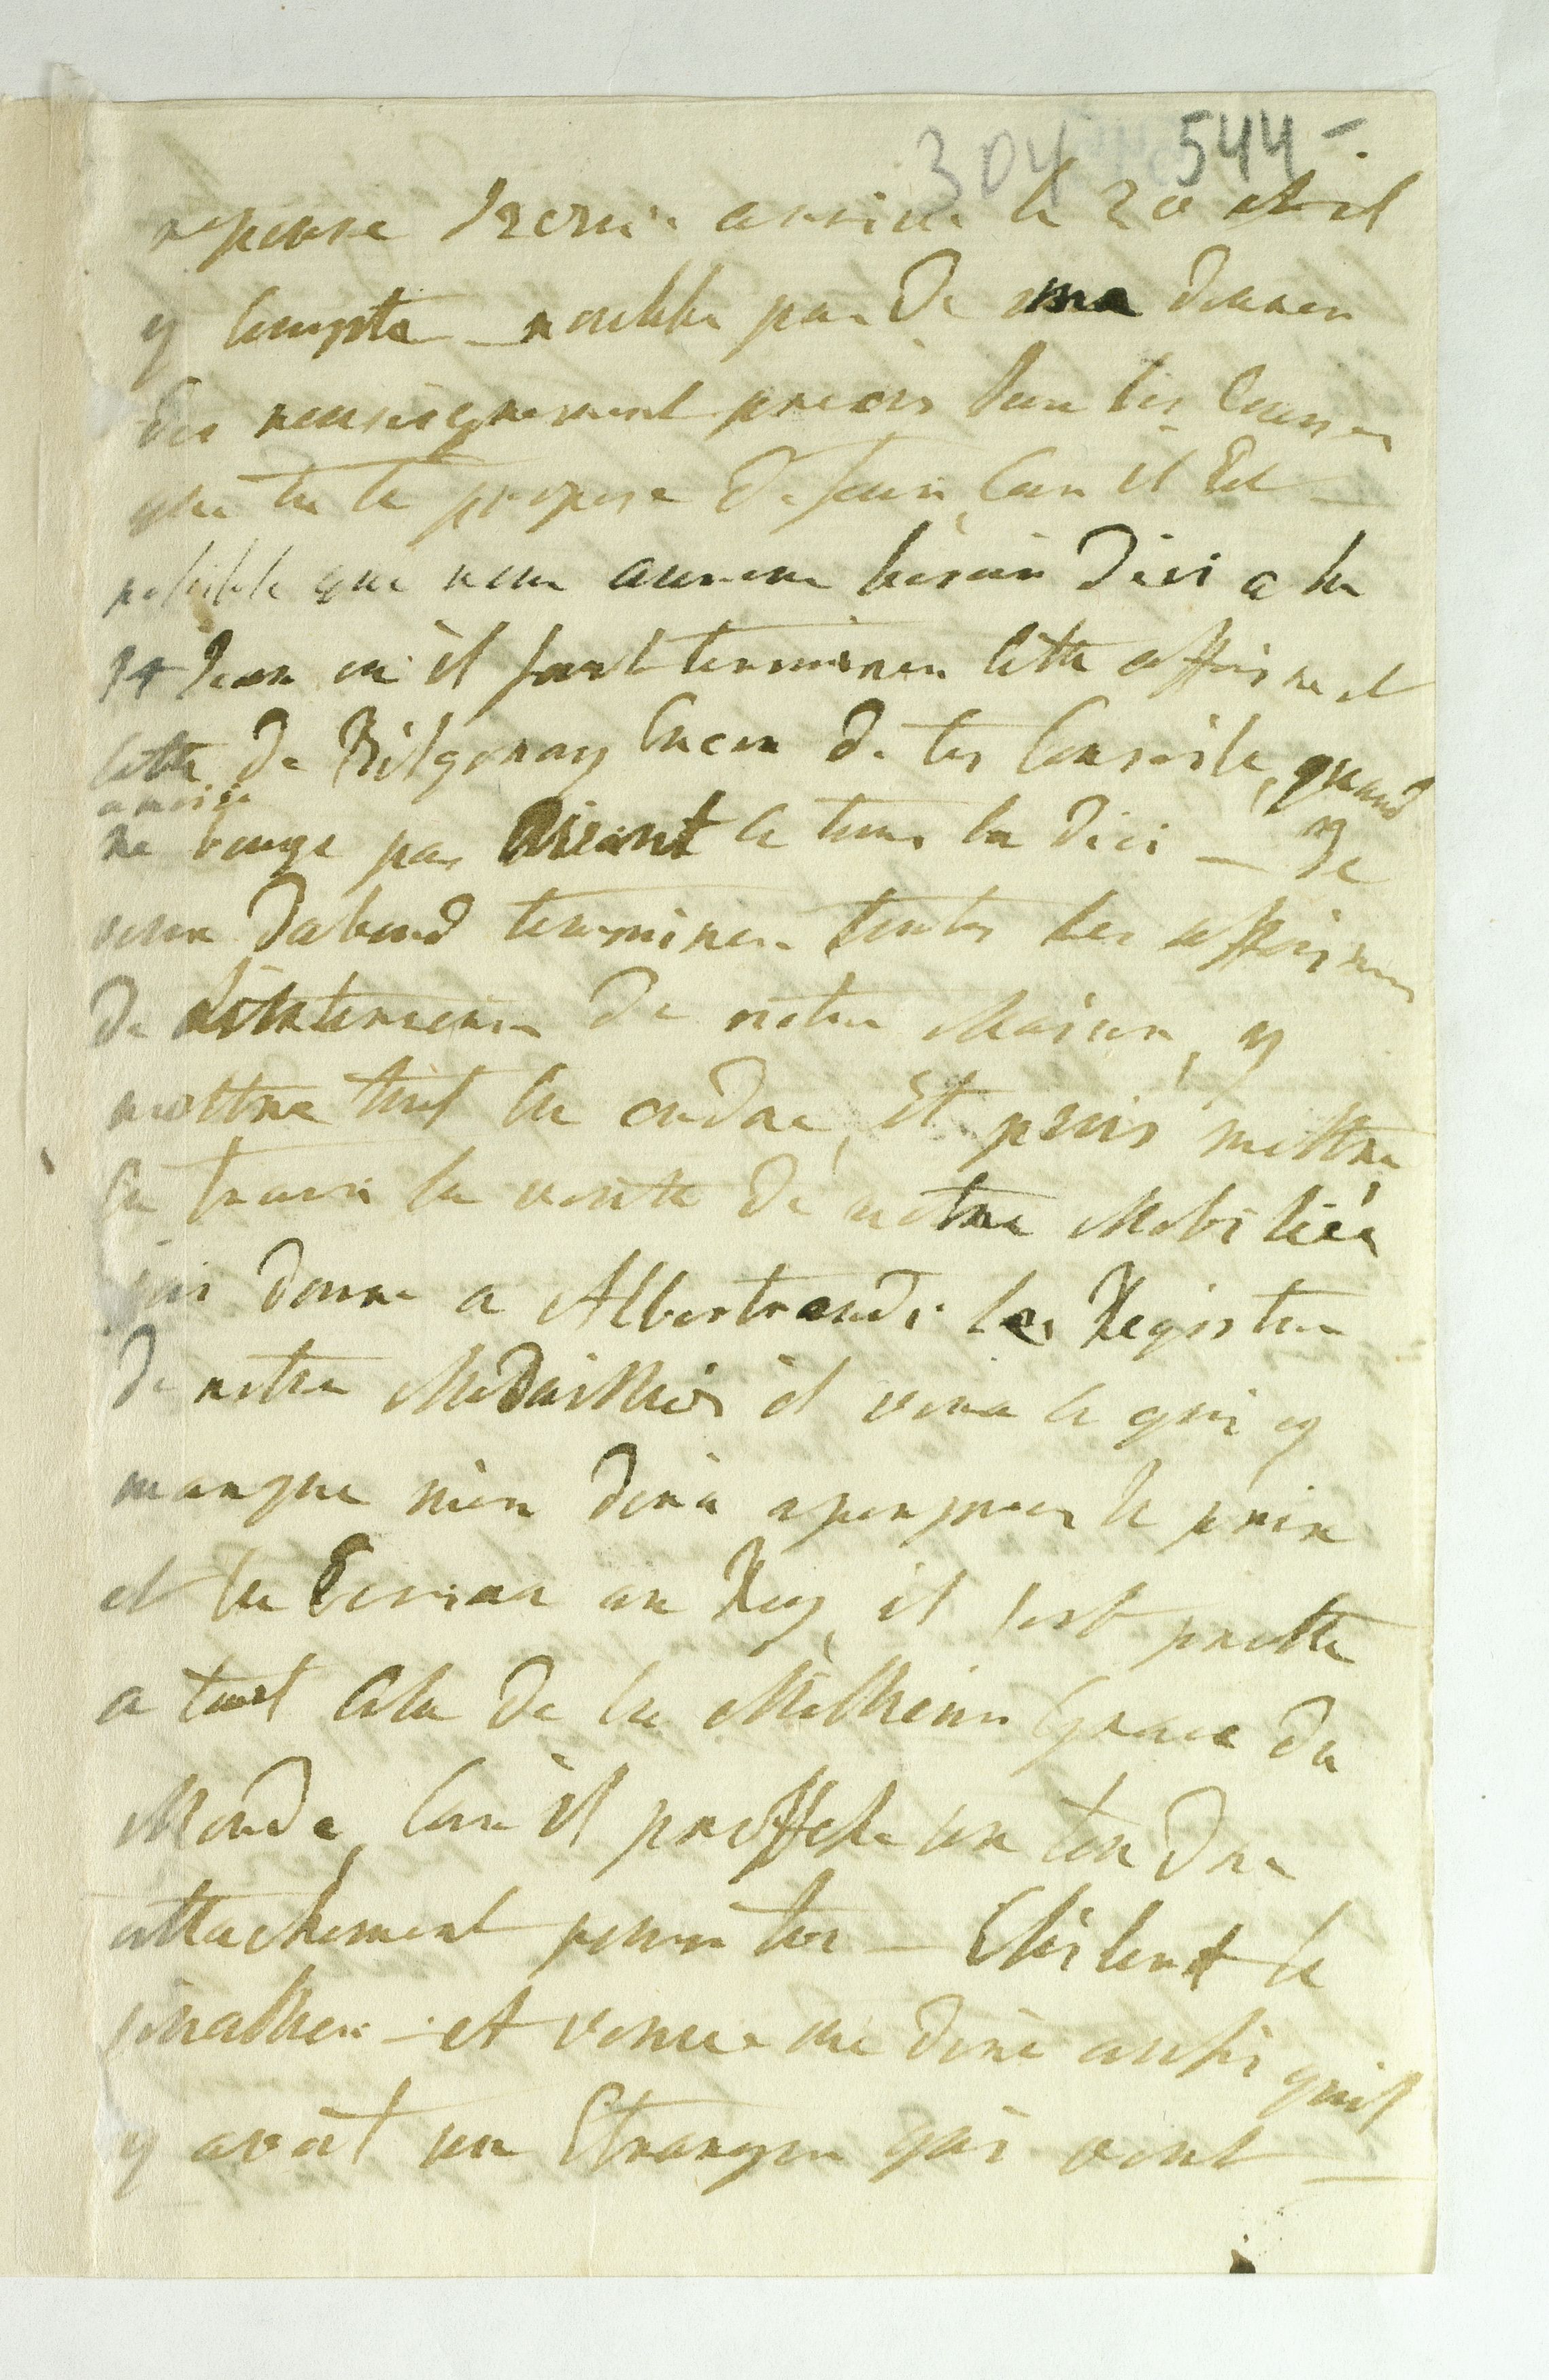 304 544 -
reponse arrive le 20 et il
y compte - noublie pas de me donner
des renseignement precis sur les courses
que tu te propose de faire, car il Est
posible que nous aurons besoin dici a la
14 Jour ou il faut terminer cette affaire et
cette de de tes Conseils, quand
a moi je
ne bouge pas avant ce tems la dici - Je
veux dabord terminer toutes les affaires
de linterieur de notre Maison, y
mettre tout en ordre, Et puis mettre
en train la vente de notre Mobilier
jai donne a Albertrandi les Registre
de notre Medaillier il vera ce qui y
manque men dira apeupres le prix
et en Ecrira au Roy, il sest prette
a tout cela de la Meilleure Grace du
Monde, car il proffesse un tendre
attachement pour toi -
et venue me dire aussi quil
y avoit un Etranger qui vent